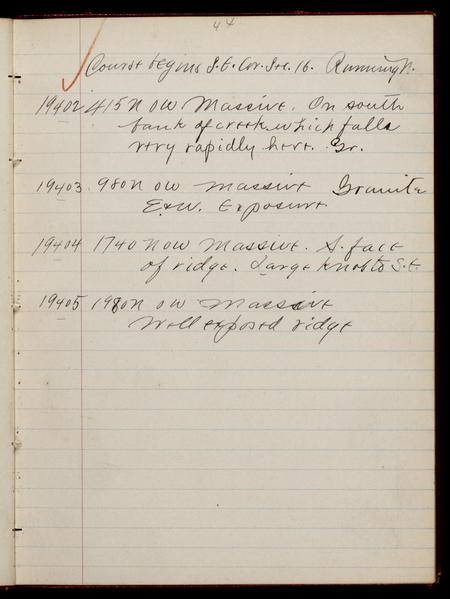 44
Course begins S.E. Cor. Sec. 16. Running N.
19402 415 N 0 W Massive. On south
bank of creek which falls
very rapidly here. Gr.
19403 980 N 0 W Massive Granite
E & W. Exposure
19404 1740 N 0 W Massive. S. face
of ridge. Large knob to S.E.
19405 1980 N 0 W Massive
Well exposed ridge